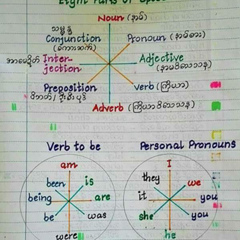 Eight Parts of Speech
Noun (နာမ်)
သမ္ဗန္ဓ
Conjunction Pronoun (နာမ်စား)
(စကားဆက်)
အာမေဍိတ် Inter- Adjective
jection (နာမဝိသေသန)
Preposition Verb (ကြိယာ)
Adverb (ကြိယာဝိသေသန)
Verb to be Personal Pronouns
am I
been is they we
being are it you
be was she you
were he